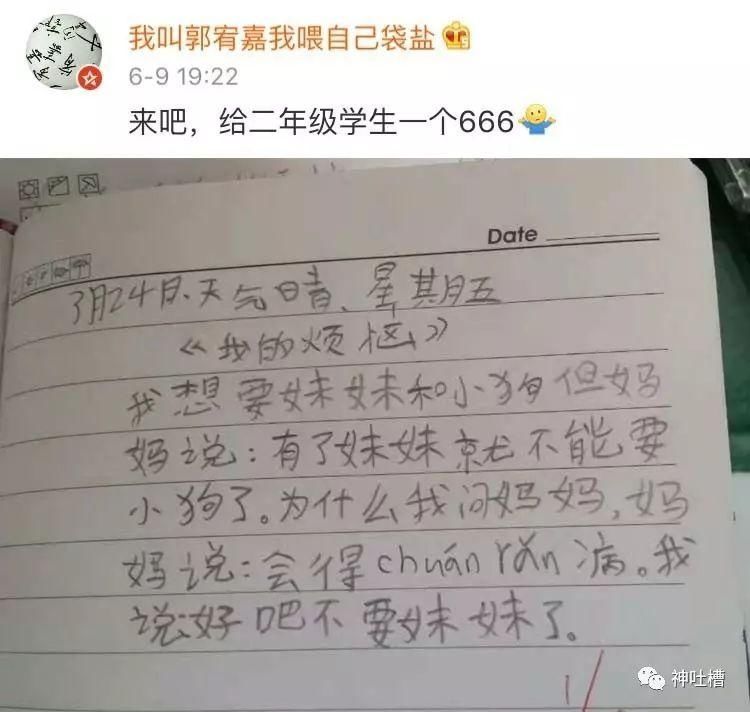 我叫郭宥嘉我喂自己袋盐
6-9 19:22
来吧，给二年级学生一个666
Date
3月24日、天气晴、星期五
《我的烦恼》
我想要妹妹和小狗但妈
妈说：有了妹妹就不能要
小狗了。为什么我问妈妈，妈
妈说：会得chuán rǎn病。我
说好吧不要妹妹了。
神吐槽